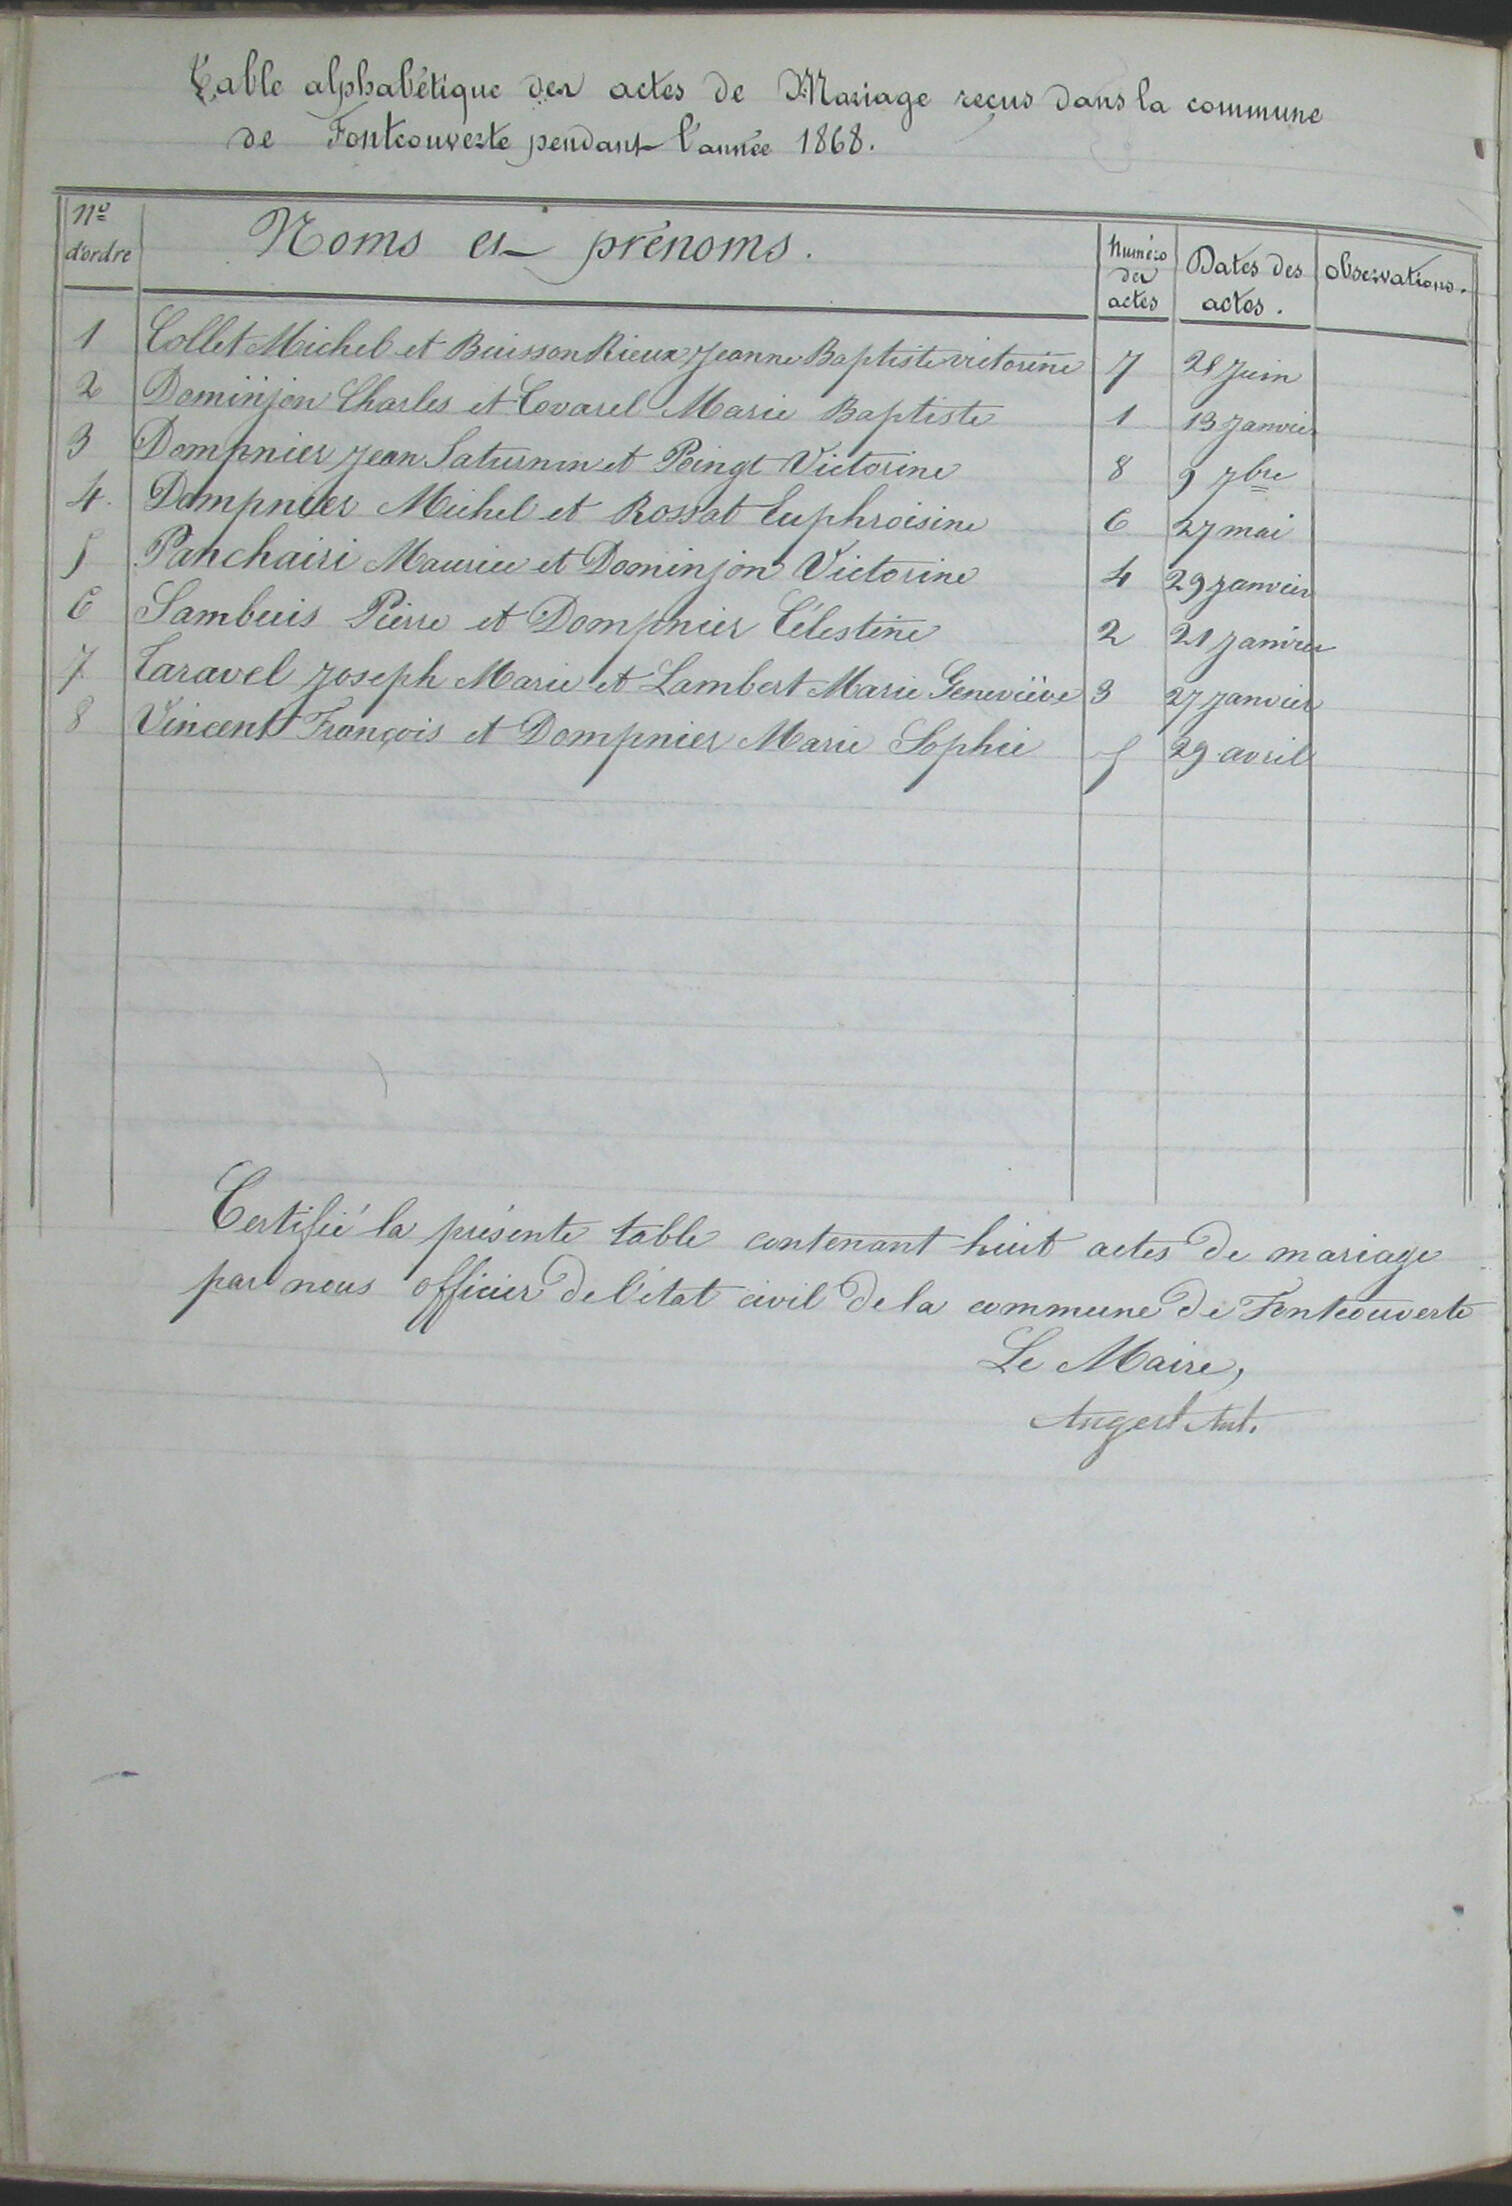 Table alphabétique des actes de Mariage reçus dans la commune
de Fontcouverte pendant l'année 1868.
Nº d'ordre Noms et prénoms. Numéro des actes Dates des actes. Observations.
1 Collet Michel et Buisson Rieux Jeanne Baptiste victorine 7 21 Juin
2 Dominjon Charles et Covarel Marie Baptiste 1 13 Janvier
3 Dompnier Jean Saturnin et Pingt Victorine 8 9 7bre
4. Dompnier Michel et Rossat Euphroisine 6 27 mai
5 Panchairi Maurice et Dominjon Victorine 4 29 Janvier
6 Sambuis Pierre et Dompnier Célestine 2 21 Janvier
7. Taravel Joseph Marie et Lambert Marie Geneviève 3 27 Janvier
8 Vincent François et Dompnier Marie Sophie 5 29 avril
Certifié la présente table contenant huit actes de mariage
par nous officier de l'état civil de la commune de Fontcouverte
Le Maire,